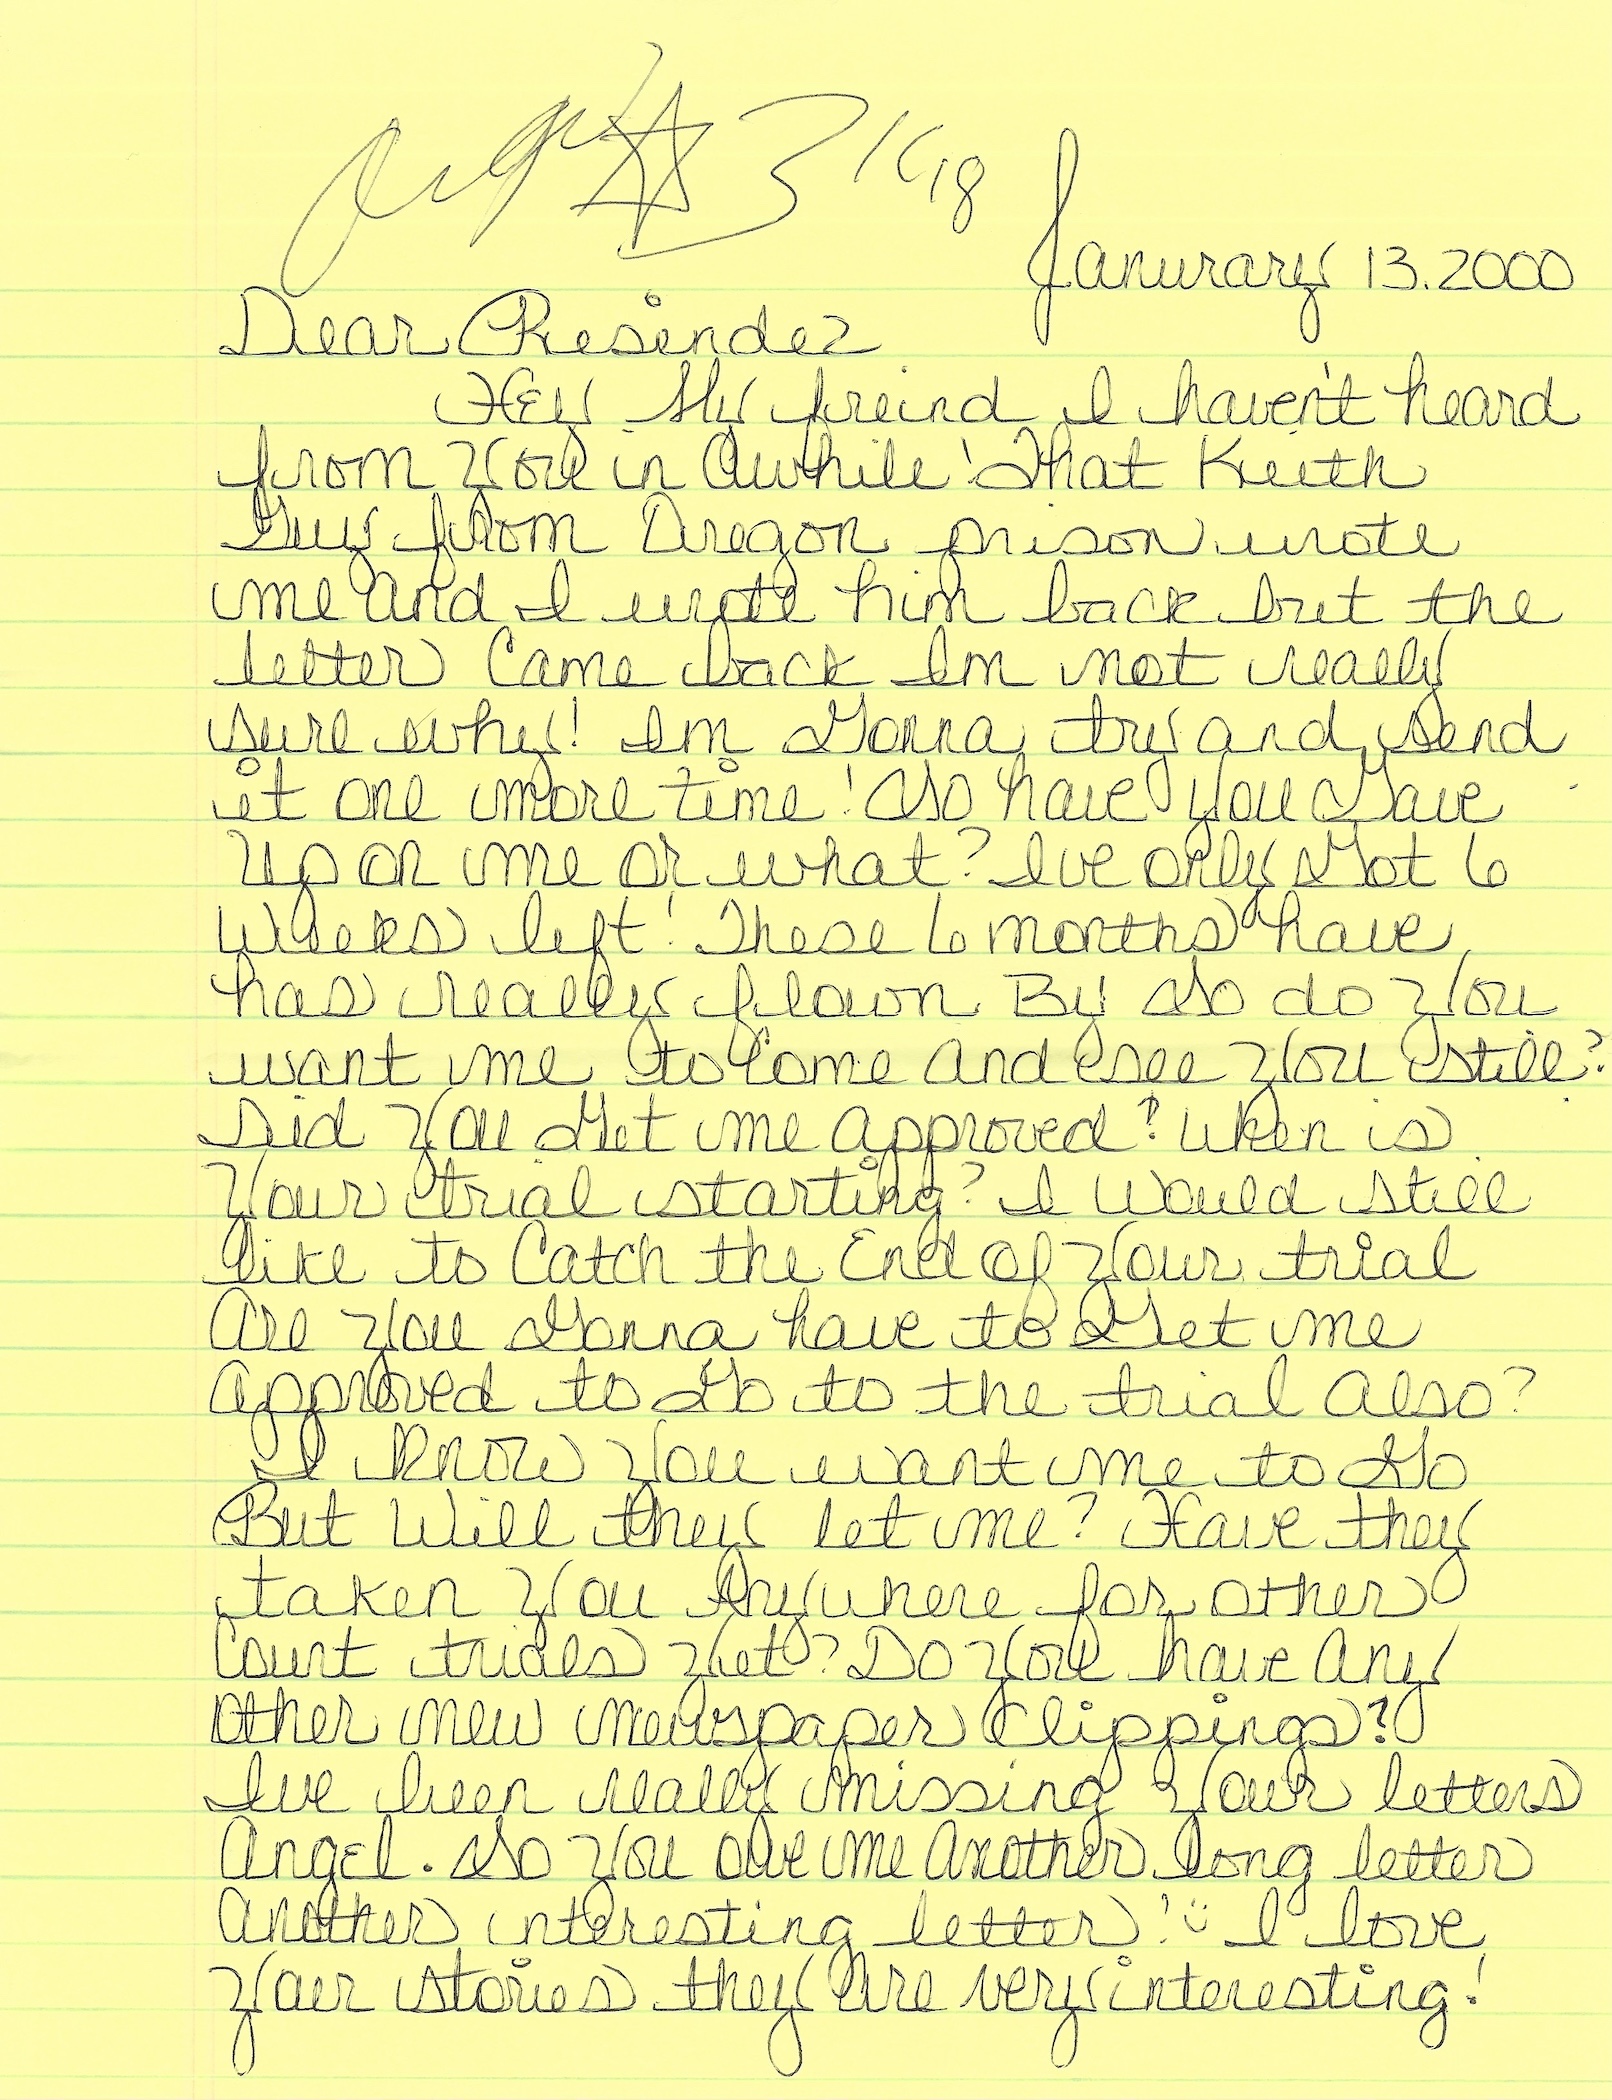 Janurary 13.2000
Dear Resindez
Hey My freind I haven't heard
from You in Awhile! That Keith
Guy from Oregon prison wrote
me And I wrote him back but the
letter Came back Im not really
sure why! Im Gonna try and send
it one more time! So have You Gave
Up on me or what? Ive only Got 6
Weeks left! These 6 months have
has really flown By So do You
want me to Come And see You still?
Did You Get me Approved? When is
Your trial starting? I Would still
like to Catch the End of Your trial
Are You Gonna have to Get me
Approved to Go to the trial Also?
I know You want me to Go
But Will they let me? Have they
taken You Anywhere for other
Court trials Yet? Do You have Any
other new newspaper Clippings?
Ive been really missing Your letters
Angel. So You owe me Another long letter
Another interesting letter! I love
Your stories they Are very interesting!